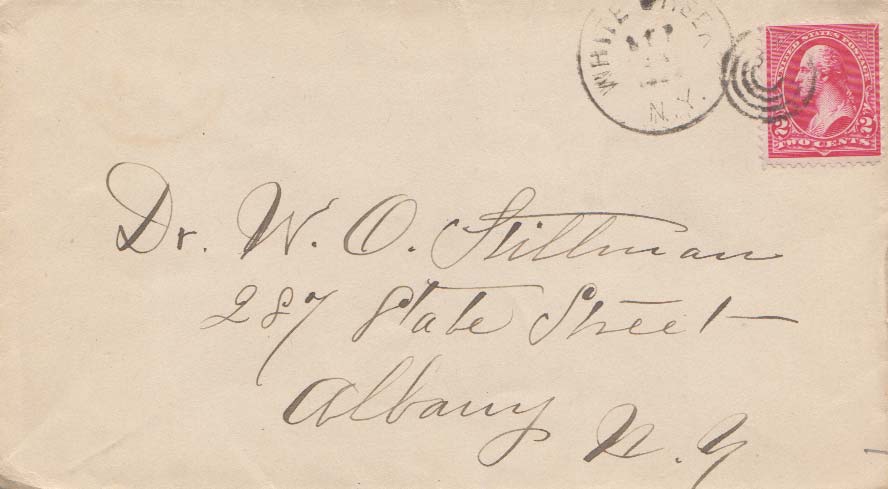 WHITE CREEK
N.Y.
UNITED STATES POSTAGE
2 TWO CENTS 2
Dr. W. O. Stillman
287 State Street
Albany
N. Y.